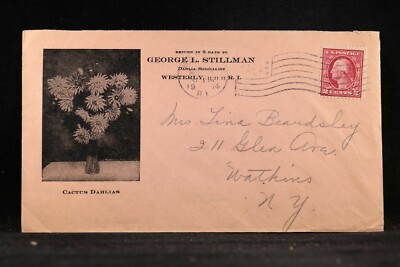 RETURN IN 5 DAYS TO
GEORGE L. STILLMAN
DAHLIA SPECIALIST
WESTERLY, R. I.
U.S. POSTAGE
2 CENTS 2
Mrs Tina Beardsley
211 Glen Ave.
Watkins
N. Y.
CACTUS DAHLIAS